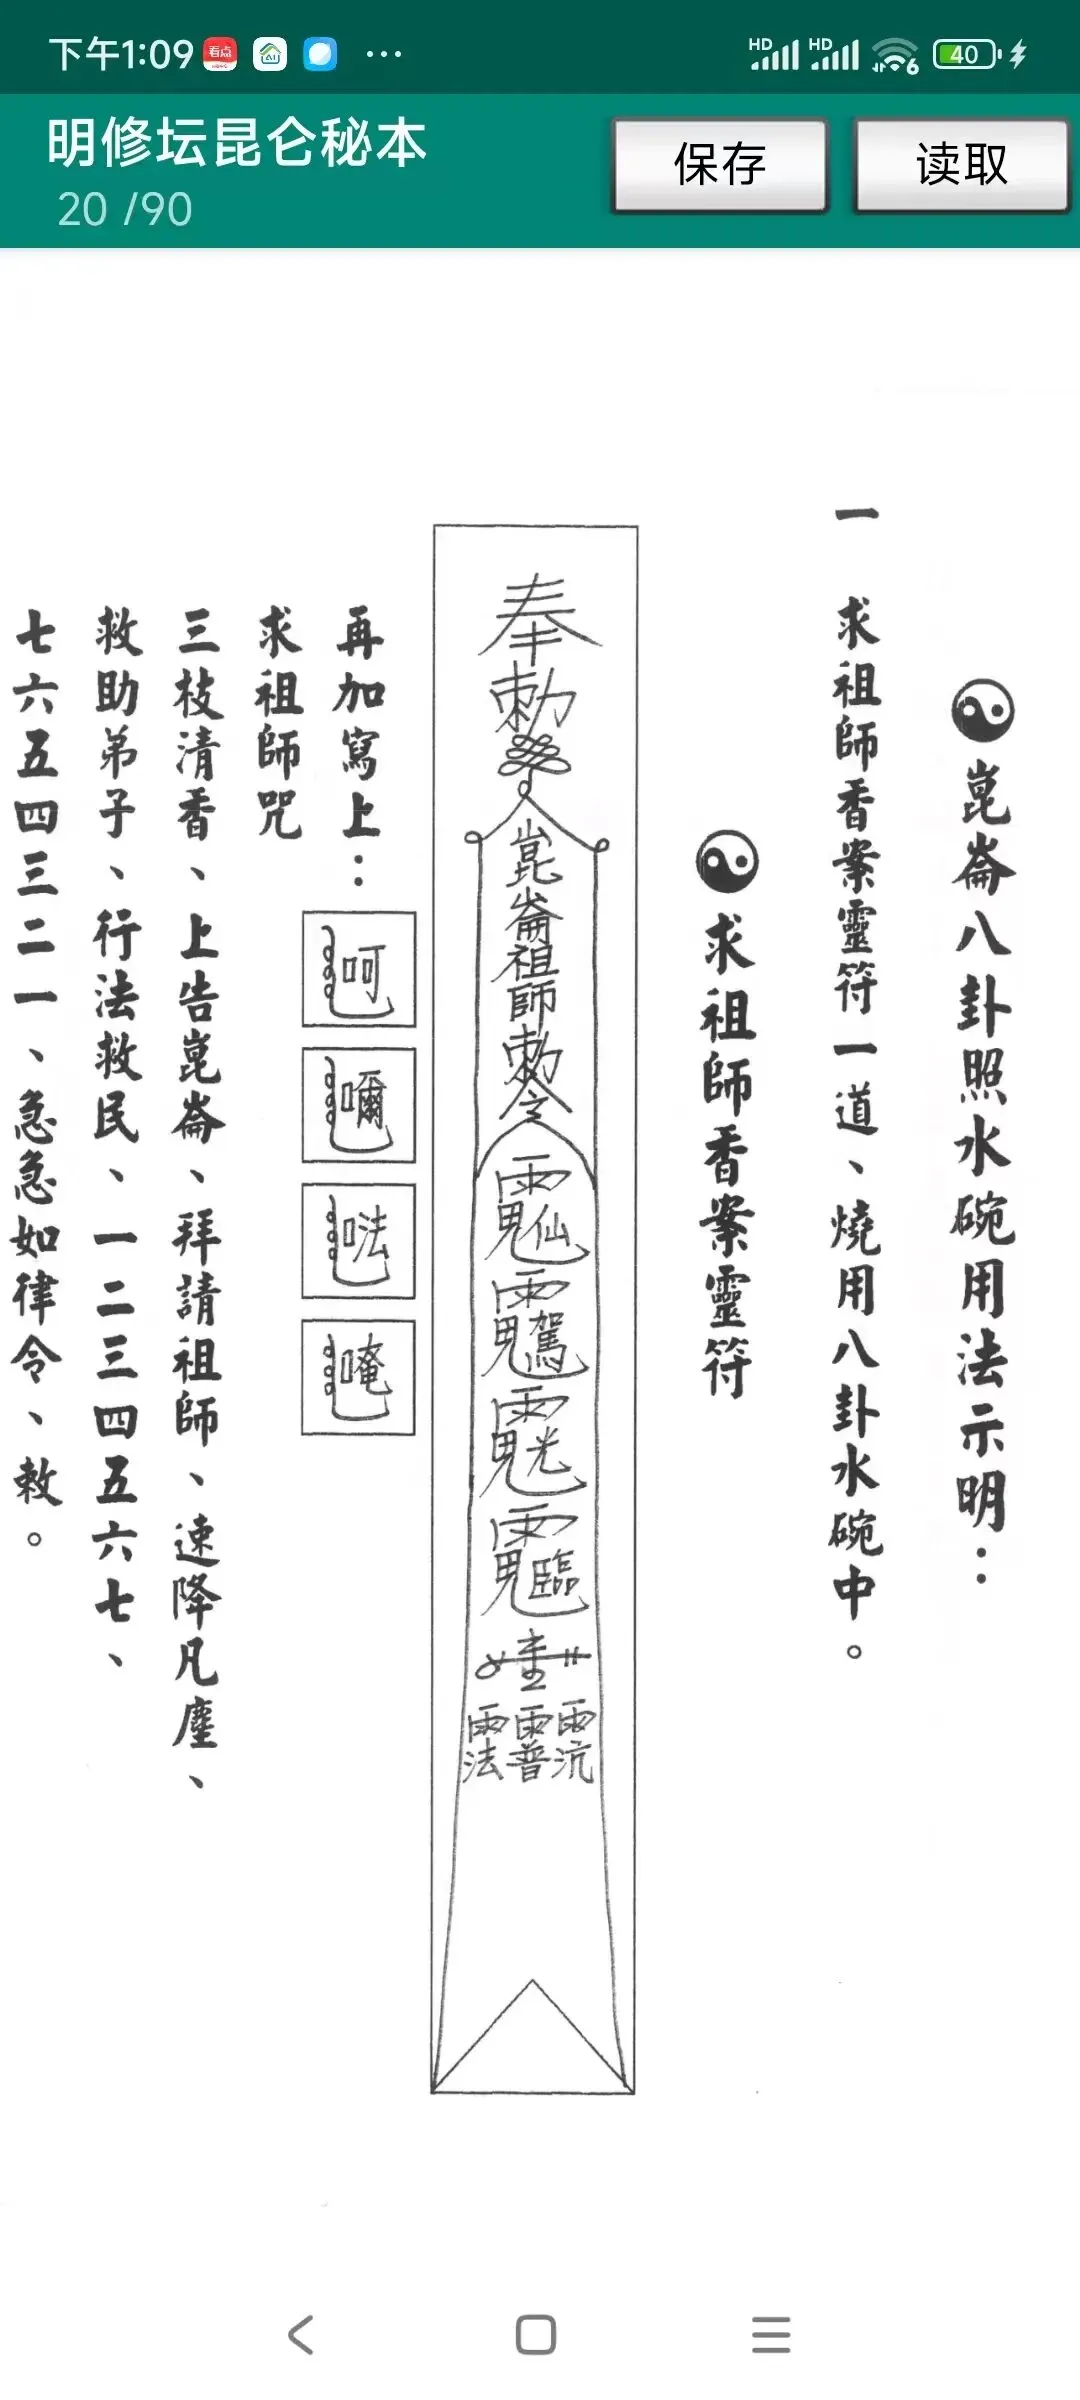 下午1:09 看点 ··· HD HD 6 40
明修坛昆仑秘本
20 /90
保存
读取
崑崙八卦照水碗用法示明：
一 求祖師香案靈符一道、燒用八卦水碗中。
求祖師香案靈符
奉
勅
崑崙祖師勅令
仙
駕
光
臨
再加寫上：
呵
嚩
㗝
唵
求祖師咒
三枝清香、上告崑崙、拜請祖師、速降凡塵、
救助弟子、行法救民、一二三四五六七、
七六五四三二一、急急如律令、敕。